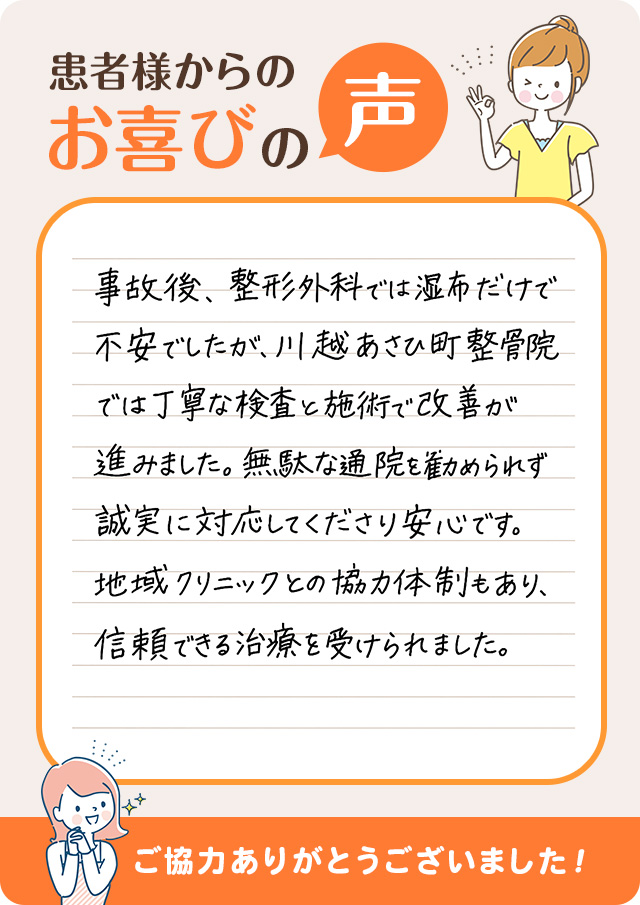 患者様からの
お喜びの声
事故後、整形外科では湿布だけで
不安でしたが、川越あさひ町整骨院
では丁寧な検査と施術で改善が
進みました。無駄な通院を勧められず
誠実に対応してくださり安心です。
地域クリニックとの協力体制もあり、
信頼できる治療を受けられました。
ご協力ありがとうございました!